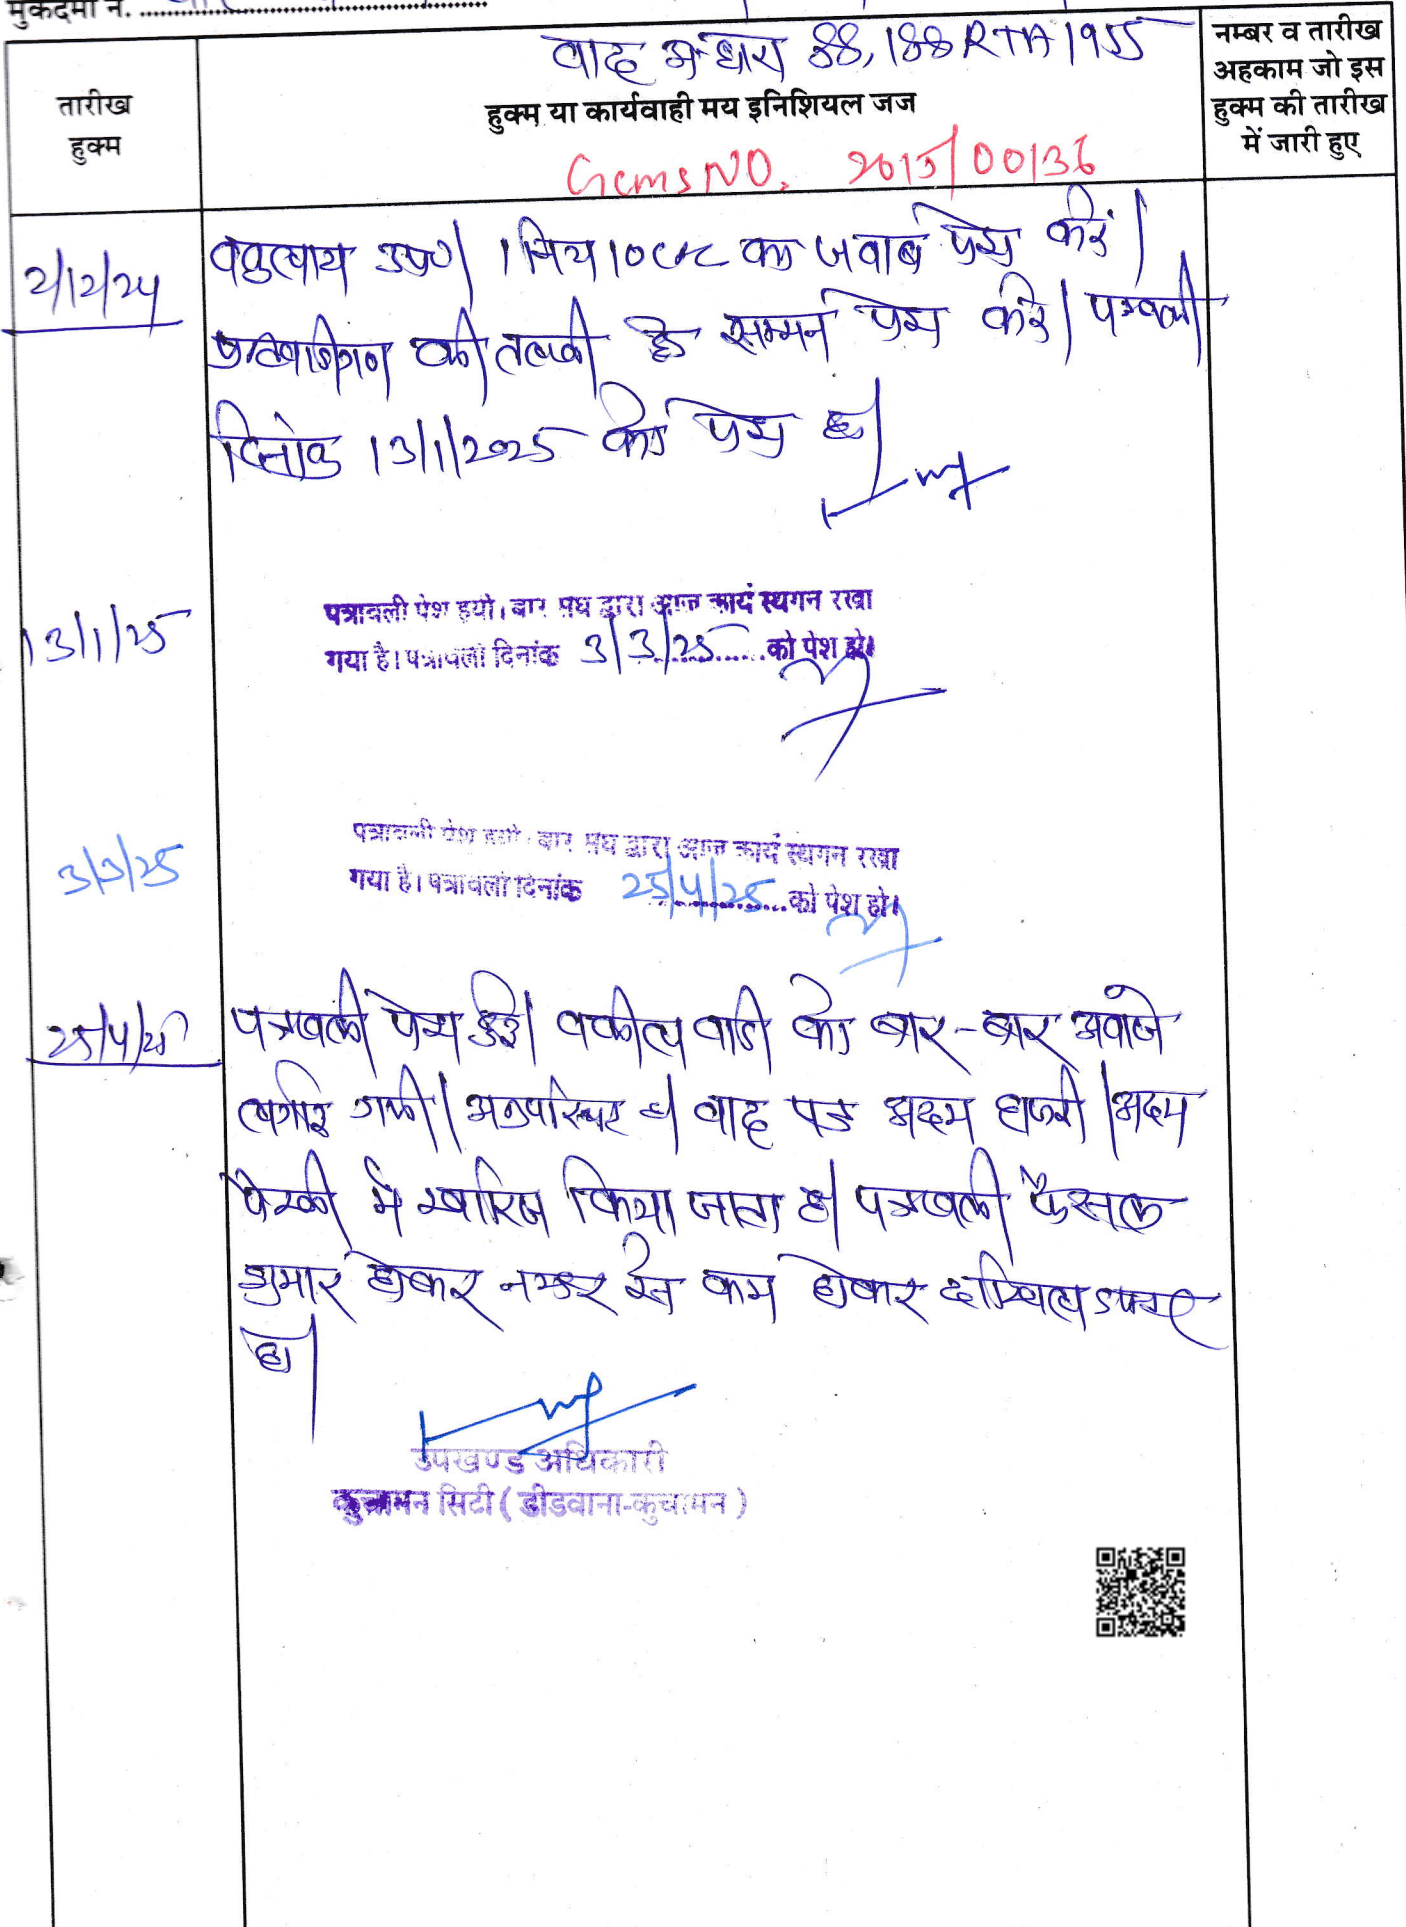 मुकदमा नं.
वाद अ० धारा 88, 188 RTA 1955
तारीख
हुक्म
हुक्म या कार्यवाही मय इनिशियल जज
नम्बर व तारीख
अहकाम जो इस
हुक्म की तारीख
में जारी हुए
GcmsNO. 2015/00136
2/12/24
वकुलाय उप०। का जवाब पेश करें।
की तलबी हेतु सम्मन पेश करें। पत्रावली
दिनांक 13/1/2025 को पेश हो।
13/1/25
पत्रावली पेश हुयी। बार संघ द्वारा आज कार्य स्थगन रखा
गया है। पत्रावली दिनांक 3/3/25 को पेश हो।
3/3/25
पत्रावली पेश हुयी। बार संघ द्वारा आज कार्य स्थगन रखा
गया है। पत्रावली दिनांक 25/4/25 को पेश हो।
25/4/25
पत्रावली पेश हुई। वकील वादी को बार-बार अवाजे
लगाई गयी। अनुपस्थित है। वाद पत्र अदम हाजरी। अदम
पैरवी में खारिज किया जाता है। पत्रावली फैसल
शुमार होकर नम्बर से कम होकर दाखिल दफ्तर
हो।
उपखण्ड अधिकारी
कुचामन सिटी (डीडवाना-कुचामन)